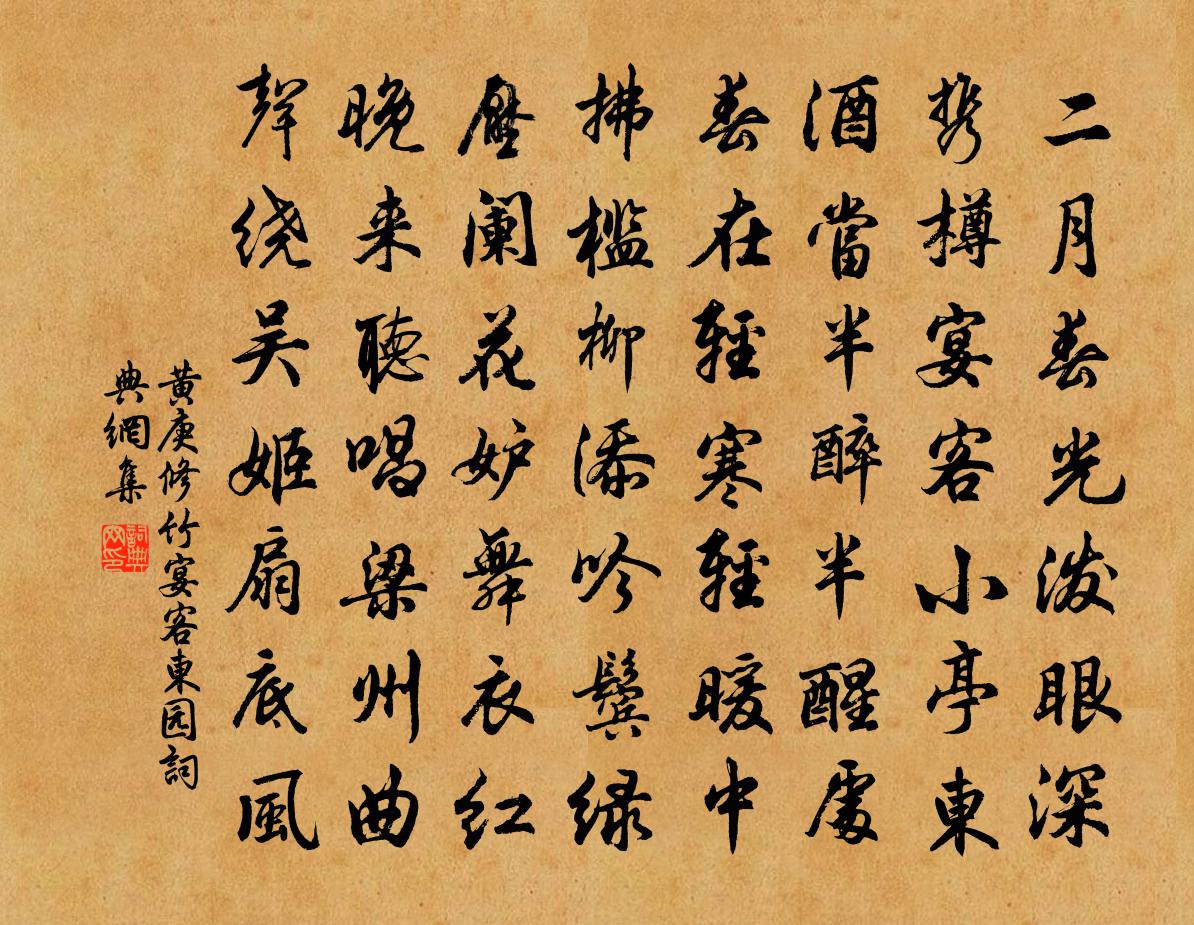 二月春光泼眼深
携樽宴客小亭東
酒當半醉半醒處
春在輕寒輕暖中
拂檻柳添吟鬓绿
壓阑花妒舞衣红
晚来聽唱梁州曲
聲绕吴姬扇底風
黄庚修竹宴客東园詞
典網集
詞典
网印